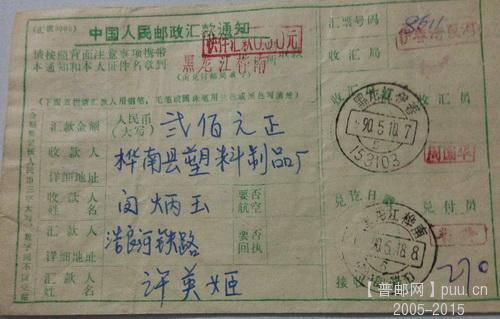 中国人民邮政汇款通知
汇票号码
8611
快件汇款0.50元
请按照背面注意事项携带
本通知和本人证件名章到
黑龙江桦南
收汇局
(下面五栏请汇款人用钢笔、毛笔或圆珠笔用兰色或黑色写清楚)
汇款金额
人民币
(大写)
贰佰元正
收款人
详细地址
桦南县塑料制品厂
收款人
姓名
闵炳玉
要否
航空
浩良河铁路
详细地址
要否
回执
汇款人
姓名
许英姬
收汇员
黑龙江桦南
90.5.10.7
153103
周国华
兑讫日戳
兑付员
黑龙江桦南
90.5.18.8
接收
270
【普邮网】puu.cn
2005-2015